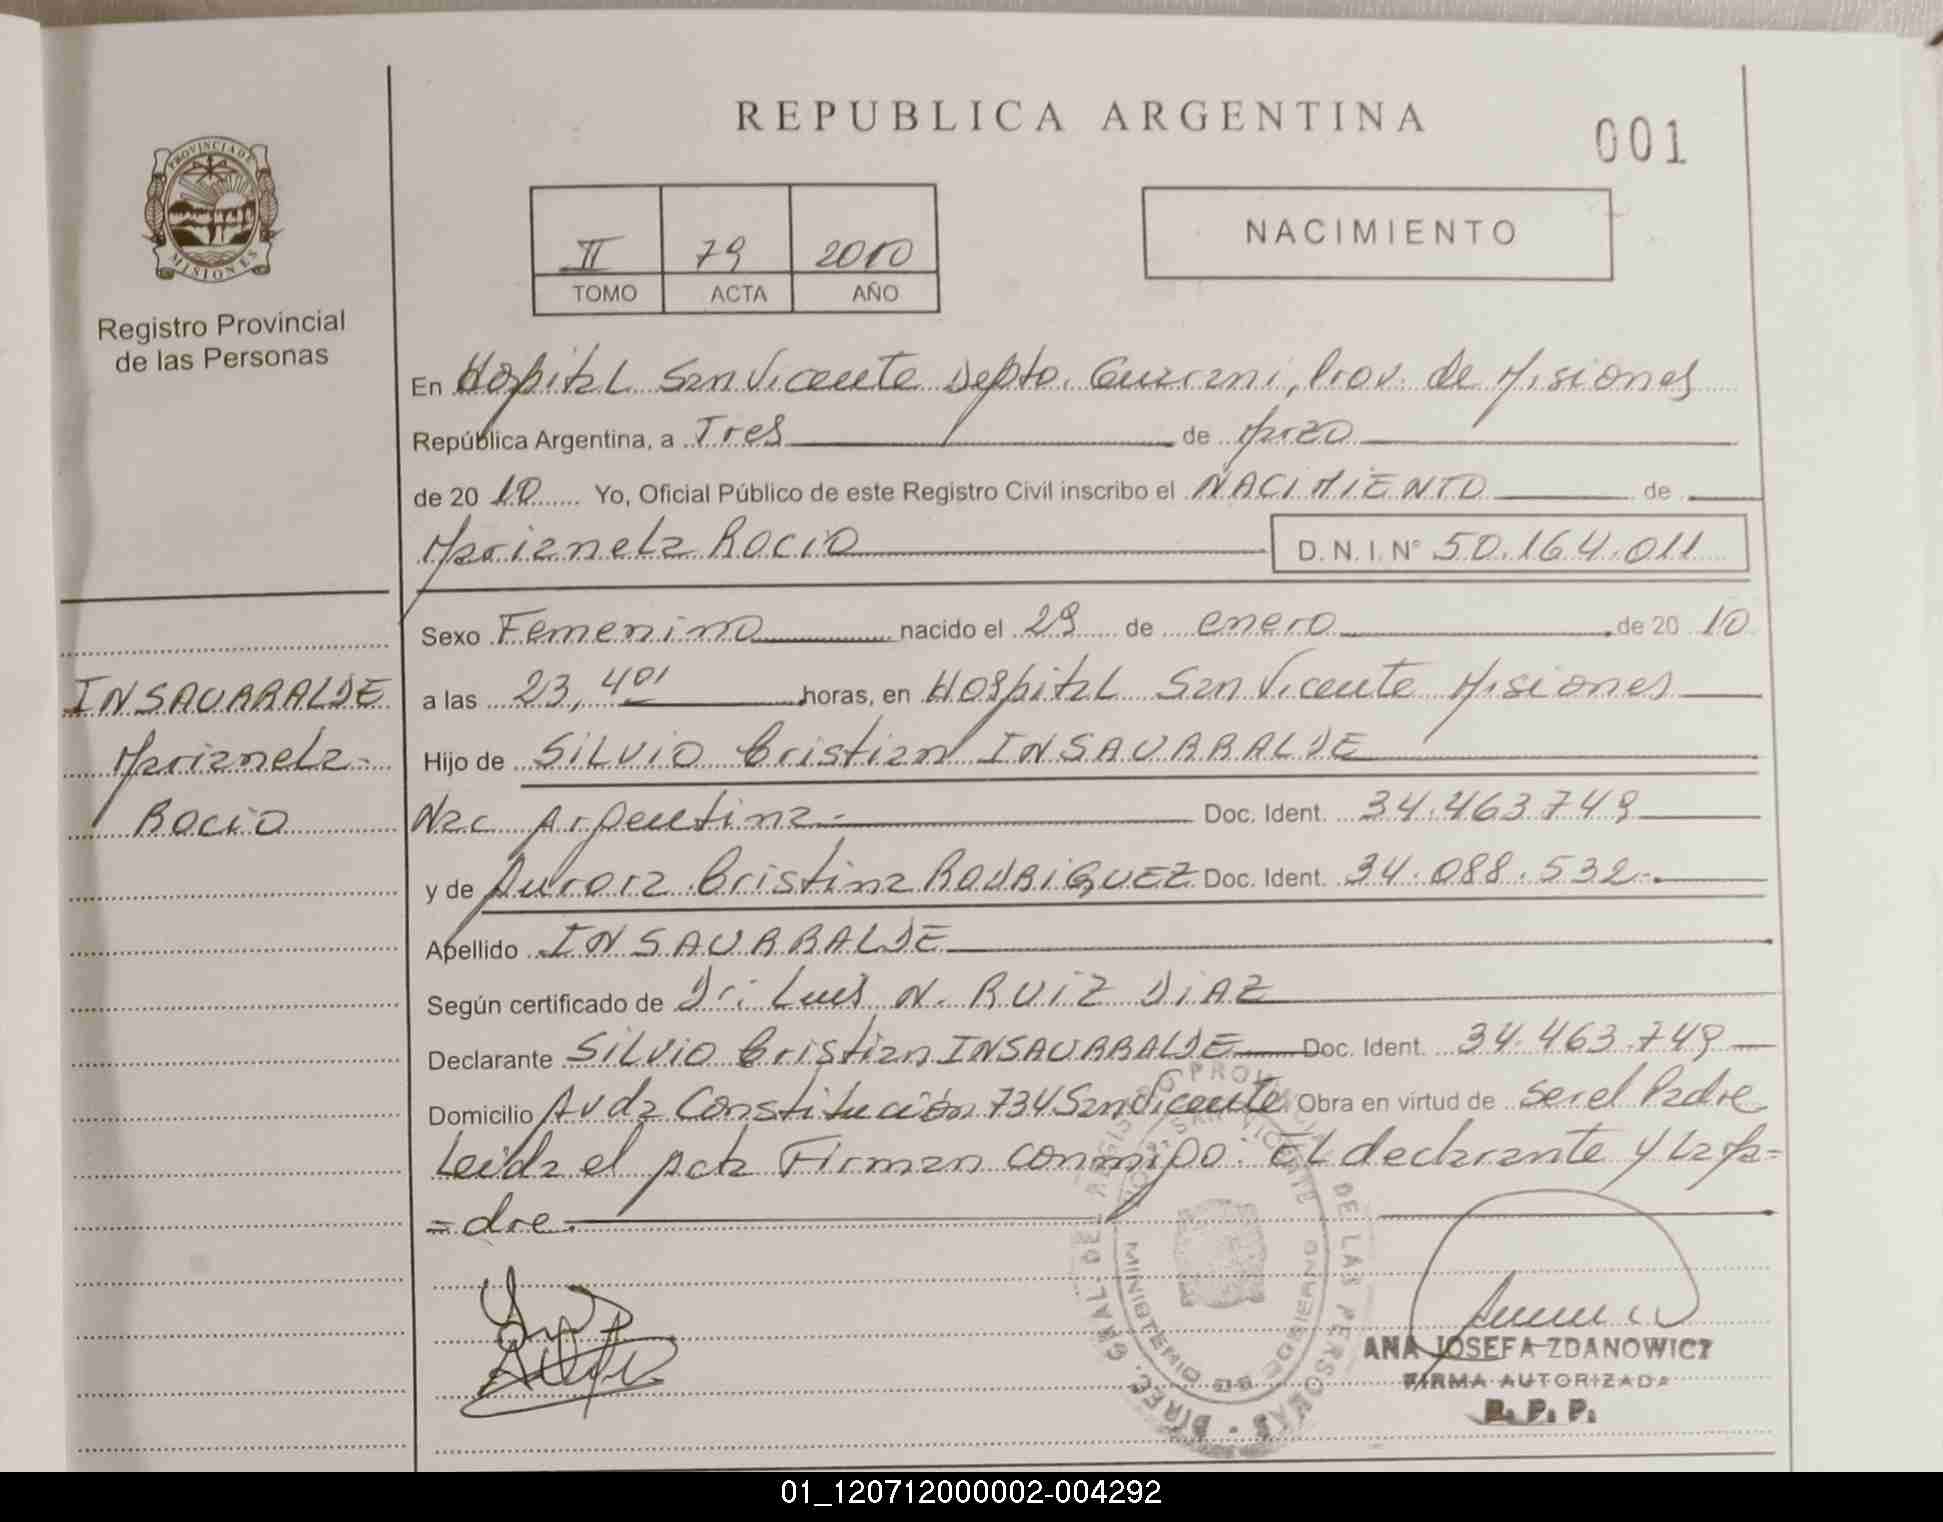 REPUBLICA ARGENTINA
001
PROVINCIA DE
MISIONES
Registro Provincial
de las Personas
II 79 2010
TOMO ACTA AÑO
NACIMIENTO
En Hospital San Vicente Depto. Guarani, Prov. de Misiones
República Argentina, a Tres de Marzo
de 20 10 Yo, Oficial Público de este Registro Civil inscribo el NACIMIENTO de
Marianela Rocio D.N.I.N° 50.164.011
Sexo Femenino nacido el 29 de enero de 20 10
INSAURRALDE
Marianela-
Rocio
a las 23,40' horas, en Hospital San Vicente Misiones
Hijo de Silvio Cristian INSAURRALDE
Nac Argentina.- Doc. Ident. 34.463.749
y de Aurora Cristina RODRIGUEZ Doc. Ident. 34.088.532.-
Apellido INSAURRALDE
Según certificado de Dr: Luis N. RUIZ DIAZ
Declarante Silvio Cristian INSAURRALDE Doc. Ident. 34.463.749
Domicilio Avda Constitución 734 San Vicente Obra en virtud de ser el Padre
Leida el Acta Firman conmigo: El declarante y La Ma=
=dre.
DIREC. GRAL. DEL REGISTRO PROVINCIAL DE LAS PERSONAS
MINISTERIO DE GOBIERNO
SAN VICENTE
ANA JOSEFA ZDANOWICZ
FIRMA AUTORIZADA
R. P. P.
01_120712000002-004292